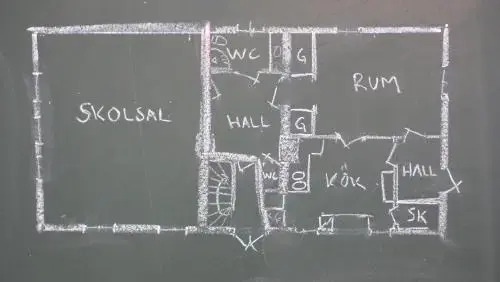 WC
G
RUM
SKOLSAL
HALL
G
WC
KÖK
HALL
G
SK